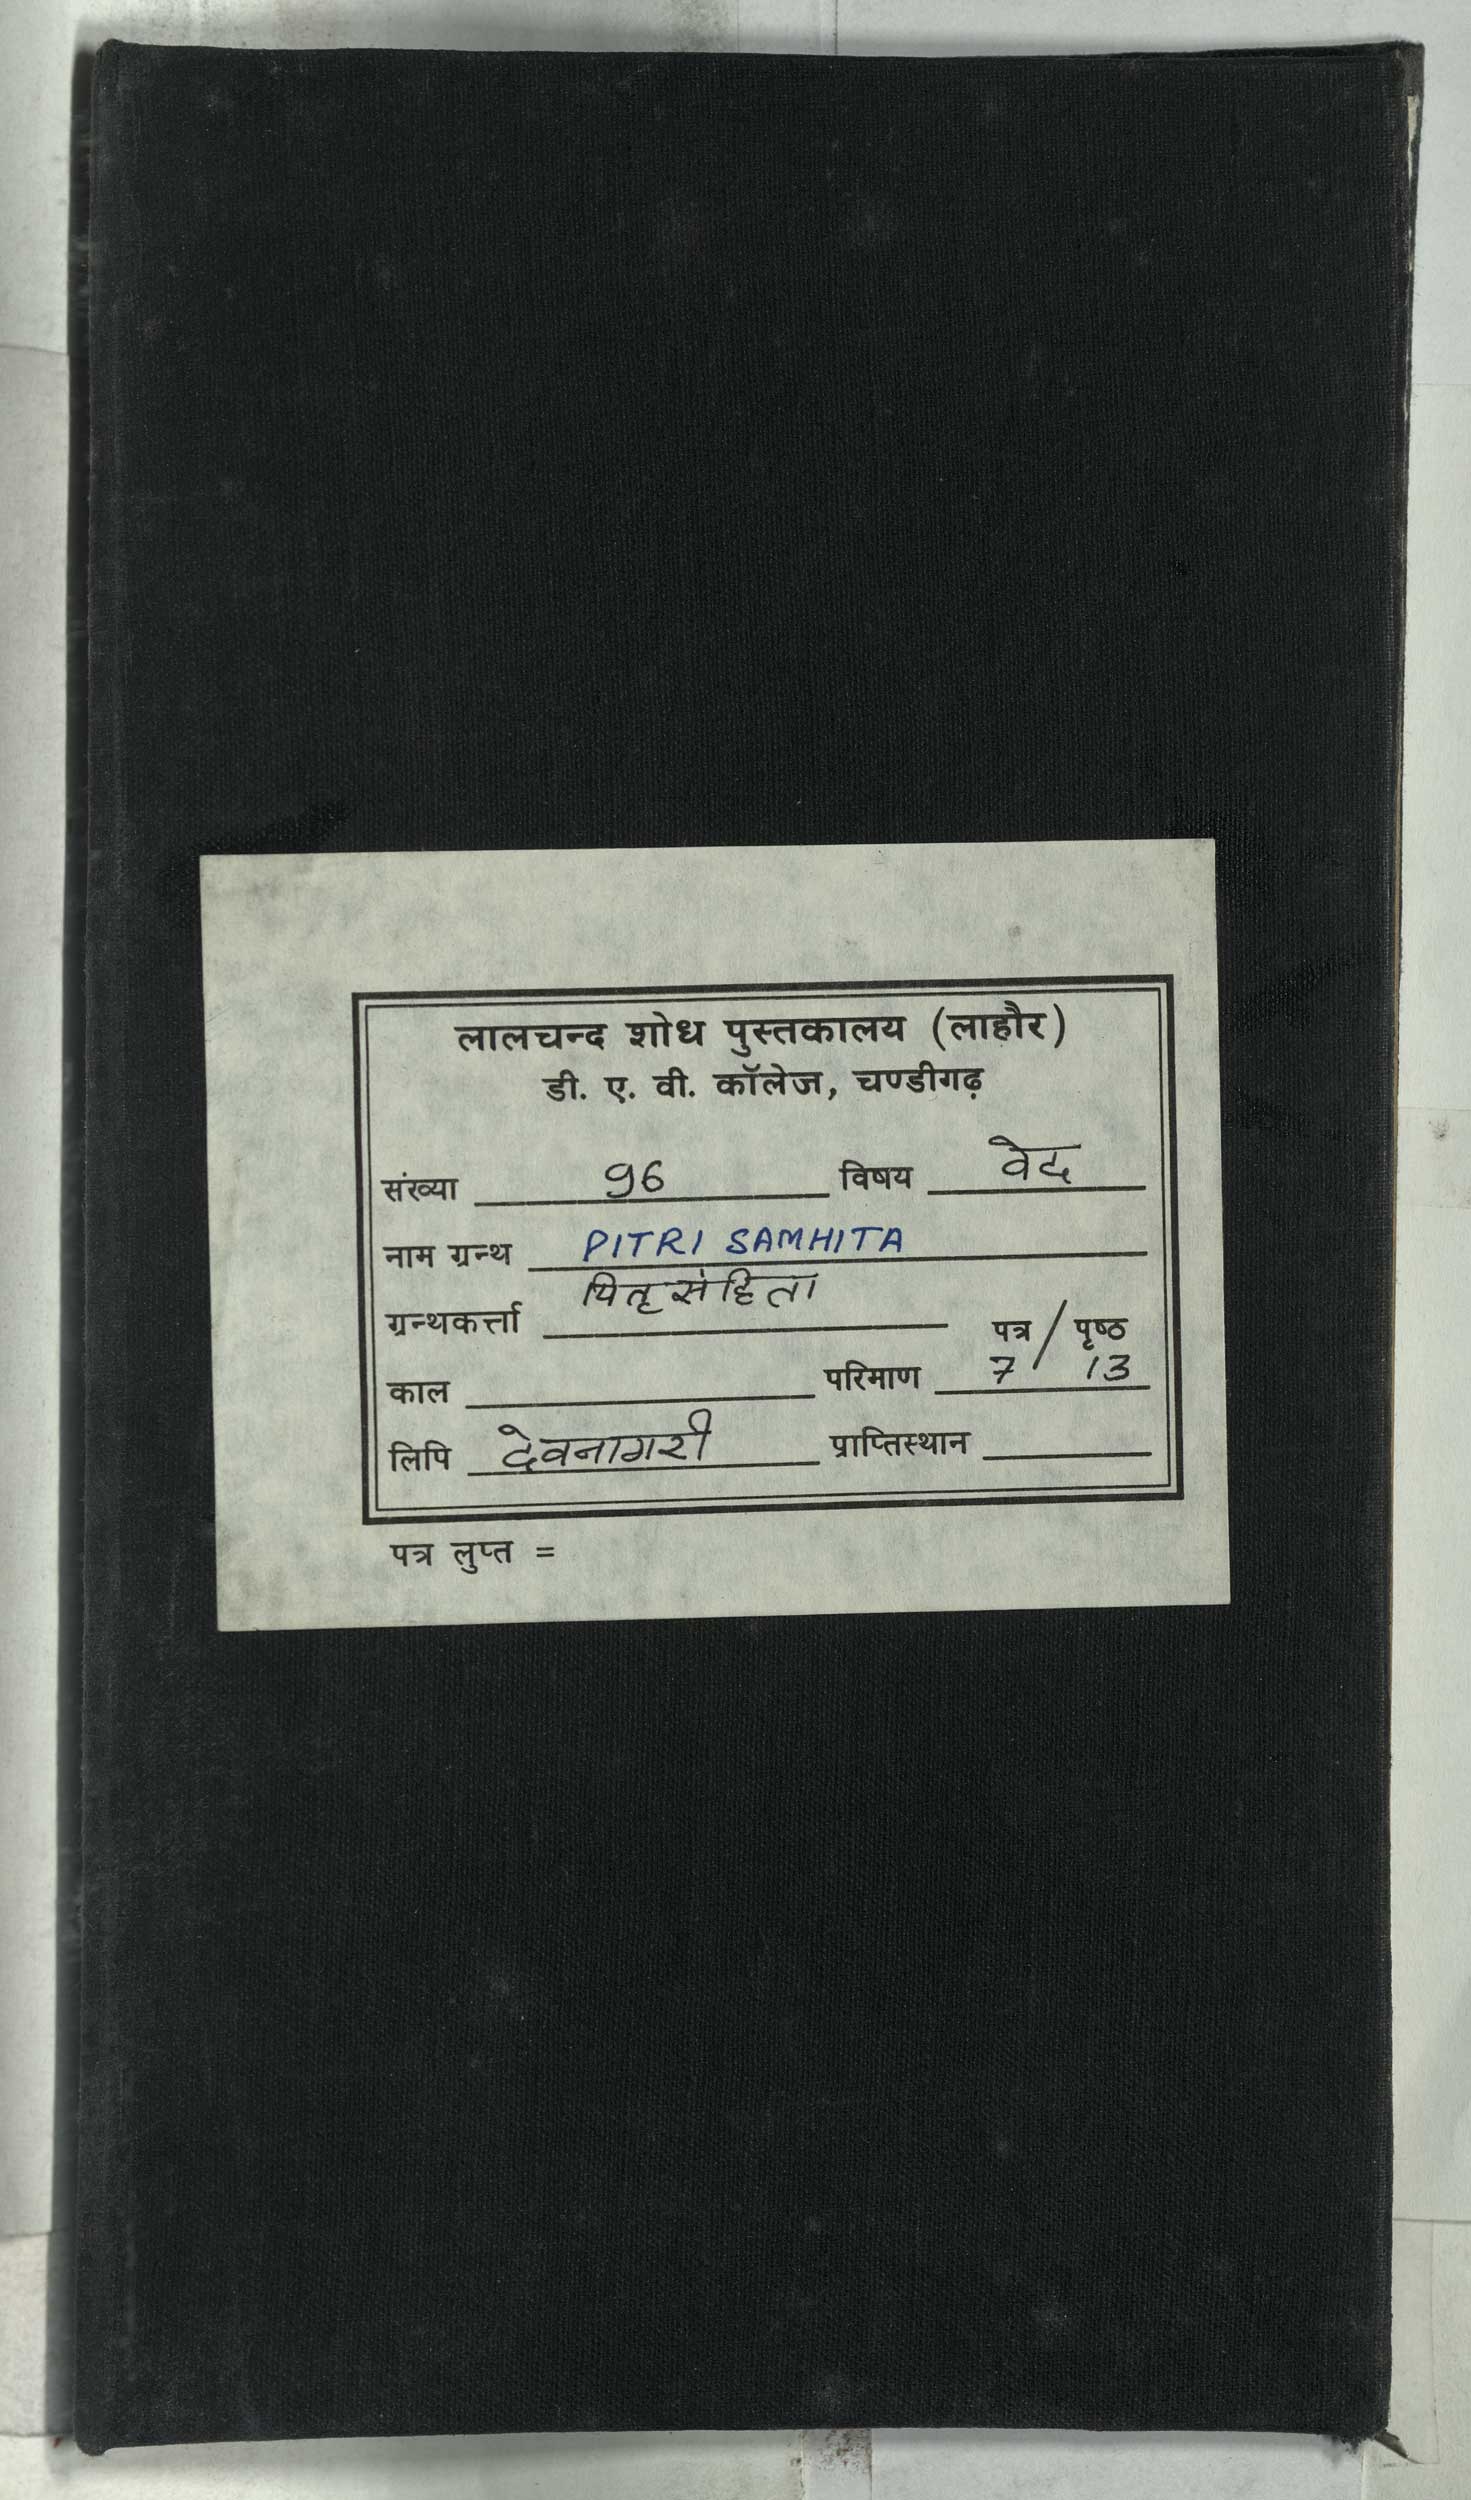 लालचन्द शोध पुस्तकालय (लाहौर)
डी. ए. वी. कॉलेज, चण्डीगढ़
संख्या 96 विषय वेद
नाम ग्रन्थ PITRI SAMHITA
पितृसंहिता
ग्रन्थकर्त्ता पत्र / पृष्ठ
काल परिमाण 7 / 13
लिपि देवनागरी प्राप्तिस्थान
पत्र लुप्त =